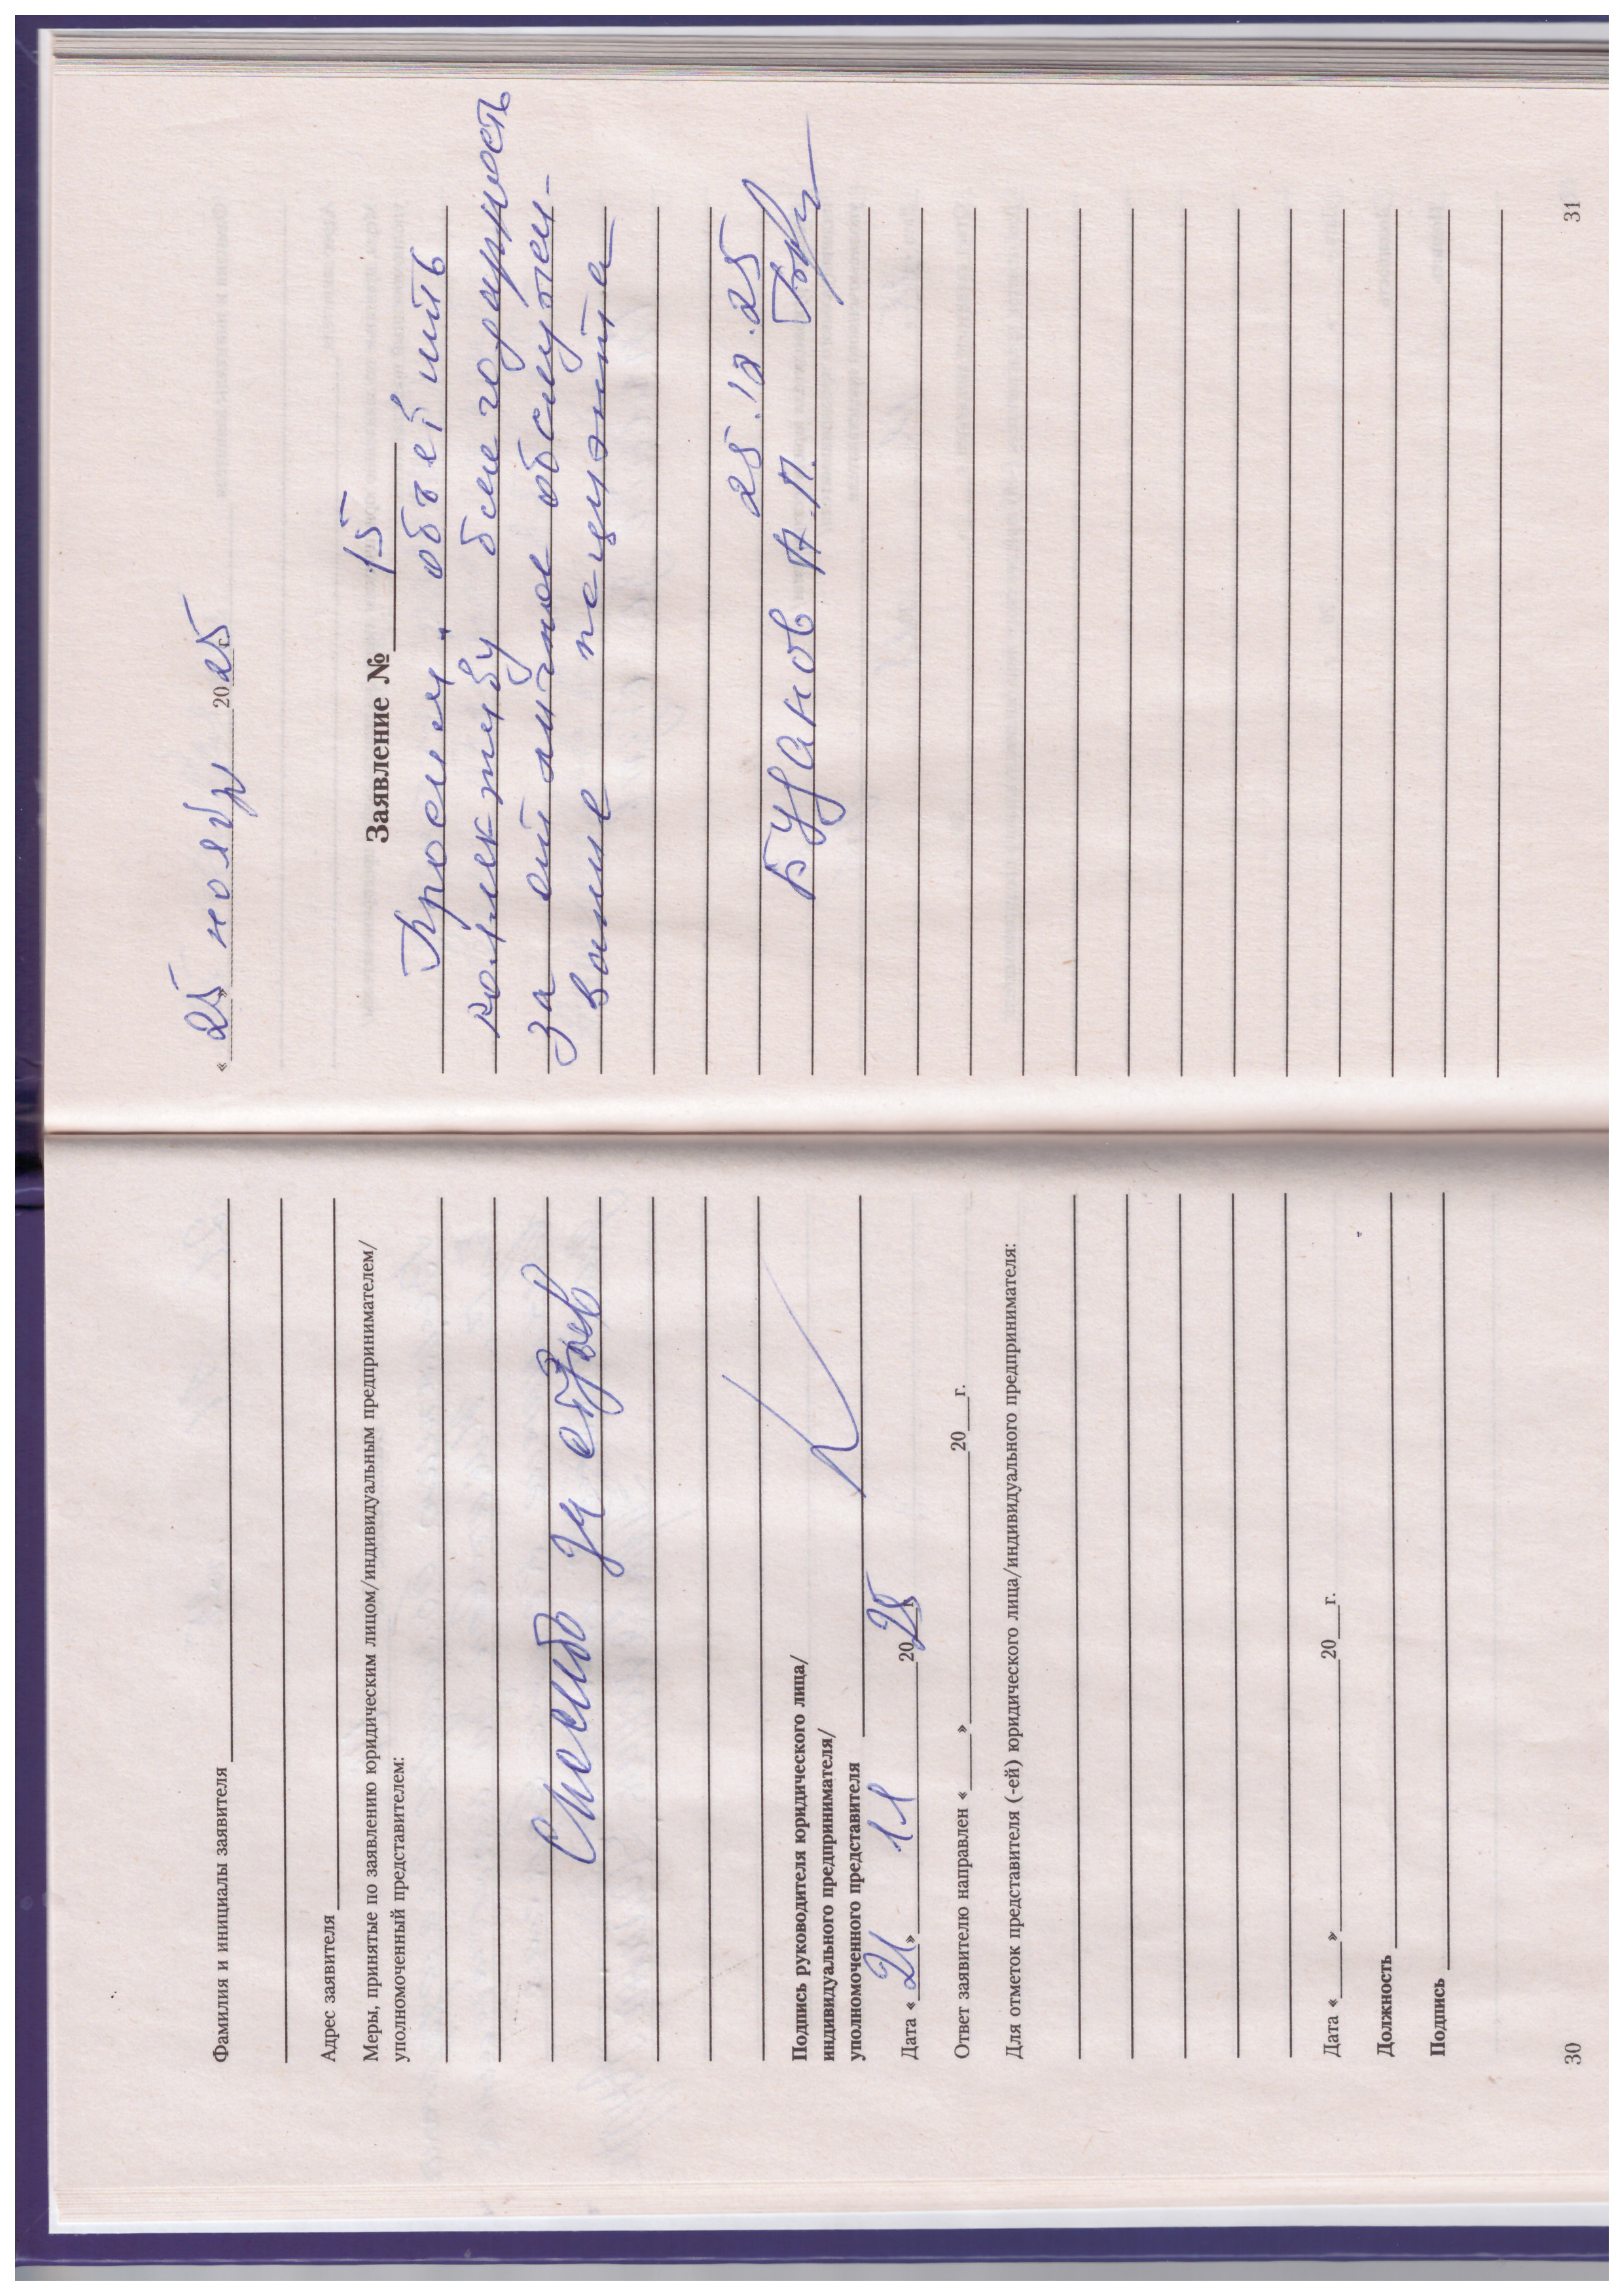 Фамилия и инициалы заявителя
Адрес заявителя
Меры, принятые по заявлению юридическим лицом/индивидуальным предпринимателем/
уполномоченный представителем:
Спасибо за отзыв
Подпись руководителя юридического лица/
индивидуального предпринимателя/
уполномоченного представителя
Дата «21» 11 2025
Ответ заявителю направлен «___» ___ 20___г.
Для отметок представителя (-ей) юридического лица/индивидуального предпринимателя:
Дата «___» ___ 20___г.
Должность
Подпись
30
«25» ноября 2025
Заявление № 15
Просим объевить
коллективу благодарность
за отличное обслужен-
вание пациэнта
25.12.25
А.П.
31